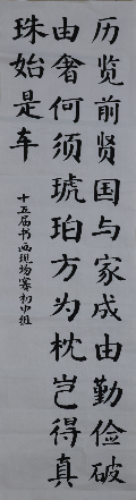 历览前贤国与家成由勤俭破
由奢何须琥珀方为枕岂得真
珠始是车
十五届书画现场赛初中组